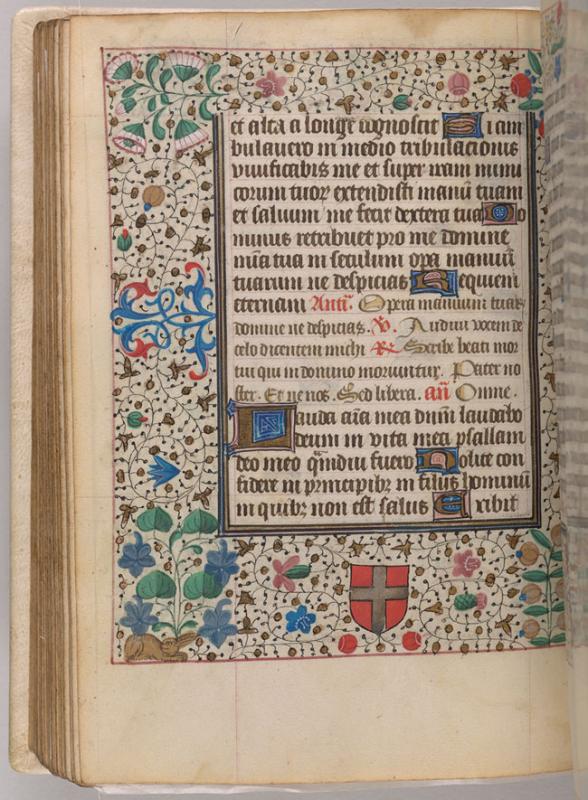 et alta a longe cognoscit Si am
bulavero in medio tribulacionis
vivificabis me et super iram inimi
corum tuoꝝ extendisti manū tuam
et salvum me fecit dextera tua Do
minus retribuet pro me domine
mīa tua in seculum opa manuū
tuarum ne despicias Requiem
eternam Antī. Opera manuum tuaꝝ
domine ne despicias. ℣. Audivi vocem de
celo dicentem michi ℟ Scribe beati mor
tui qui in domino moriuntur. Pater no
ster. Et ne nos. Sed libera. an̄ Omne.
Lauda aīa mea dnm̄ laudabo
deum in vita mea psallam
deo meo q̄mdiu fuero Nolite con
fidere in principibꝫ in filiis hominū
in quibꝫ non est salus Exibit